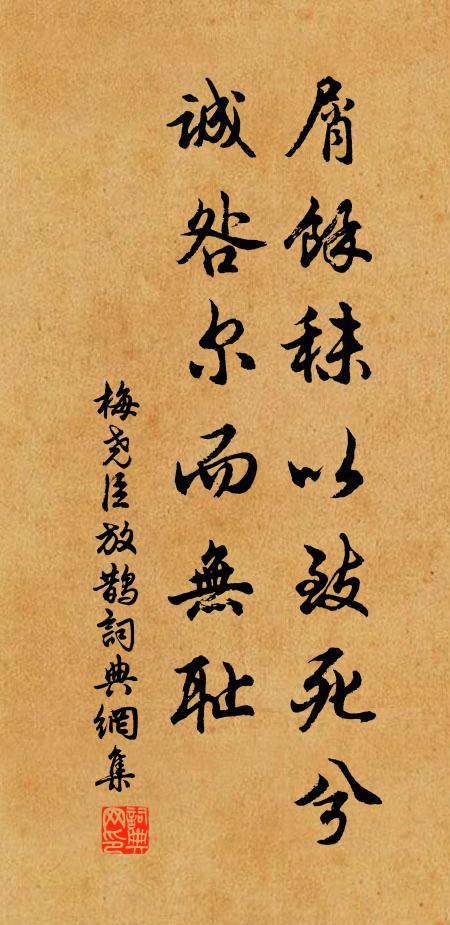 屑餘秣以致死兮
誠咎尔而無耻
梅尧臣放鹊詞典網集
詞典网印